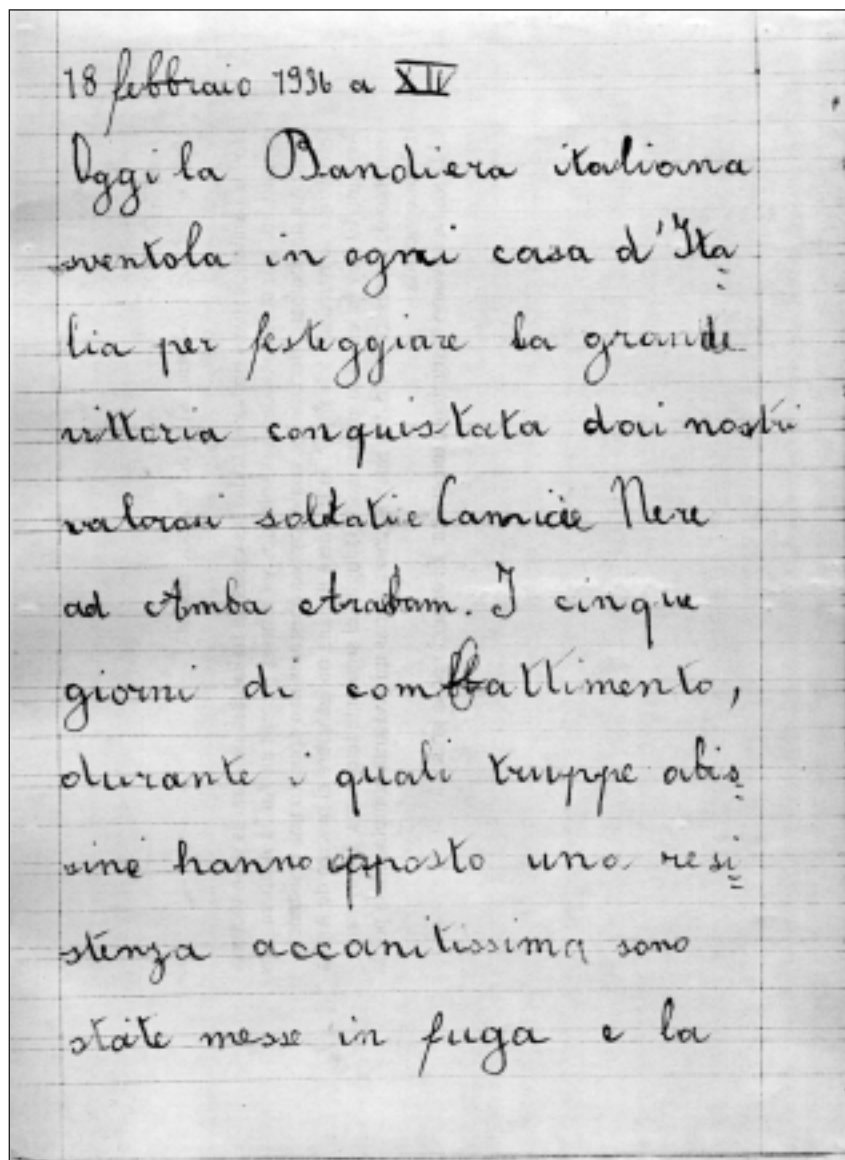 18 febbraio 1936 a XIV
Oggi la Bandiera italiana
sventola in ogni casa d'Ita=
lia per festeggiare la grande
vittoria conquistata dai nostri
valorosi soldati e Camicie Nere
ad Amba Aradam. I cinque
giorni di combattimento,
durante i quali truppe abis=
sine hanno opposto una resi=
stenza accanitissima sono
state messe in fuga e la